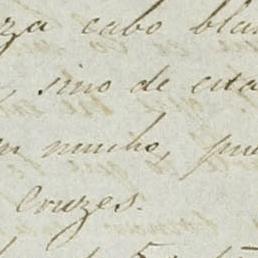 za cabo blan
, sino de esta
n mucho, pue
Cruzes.